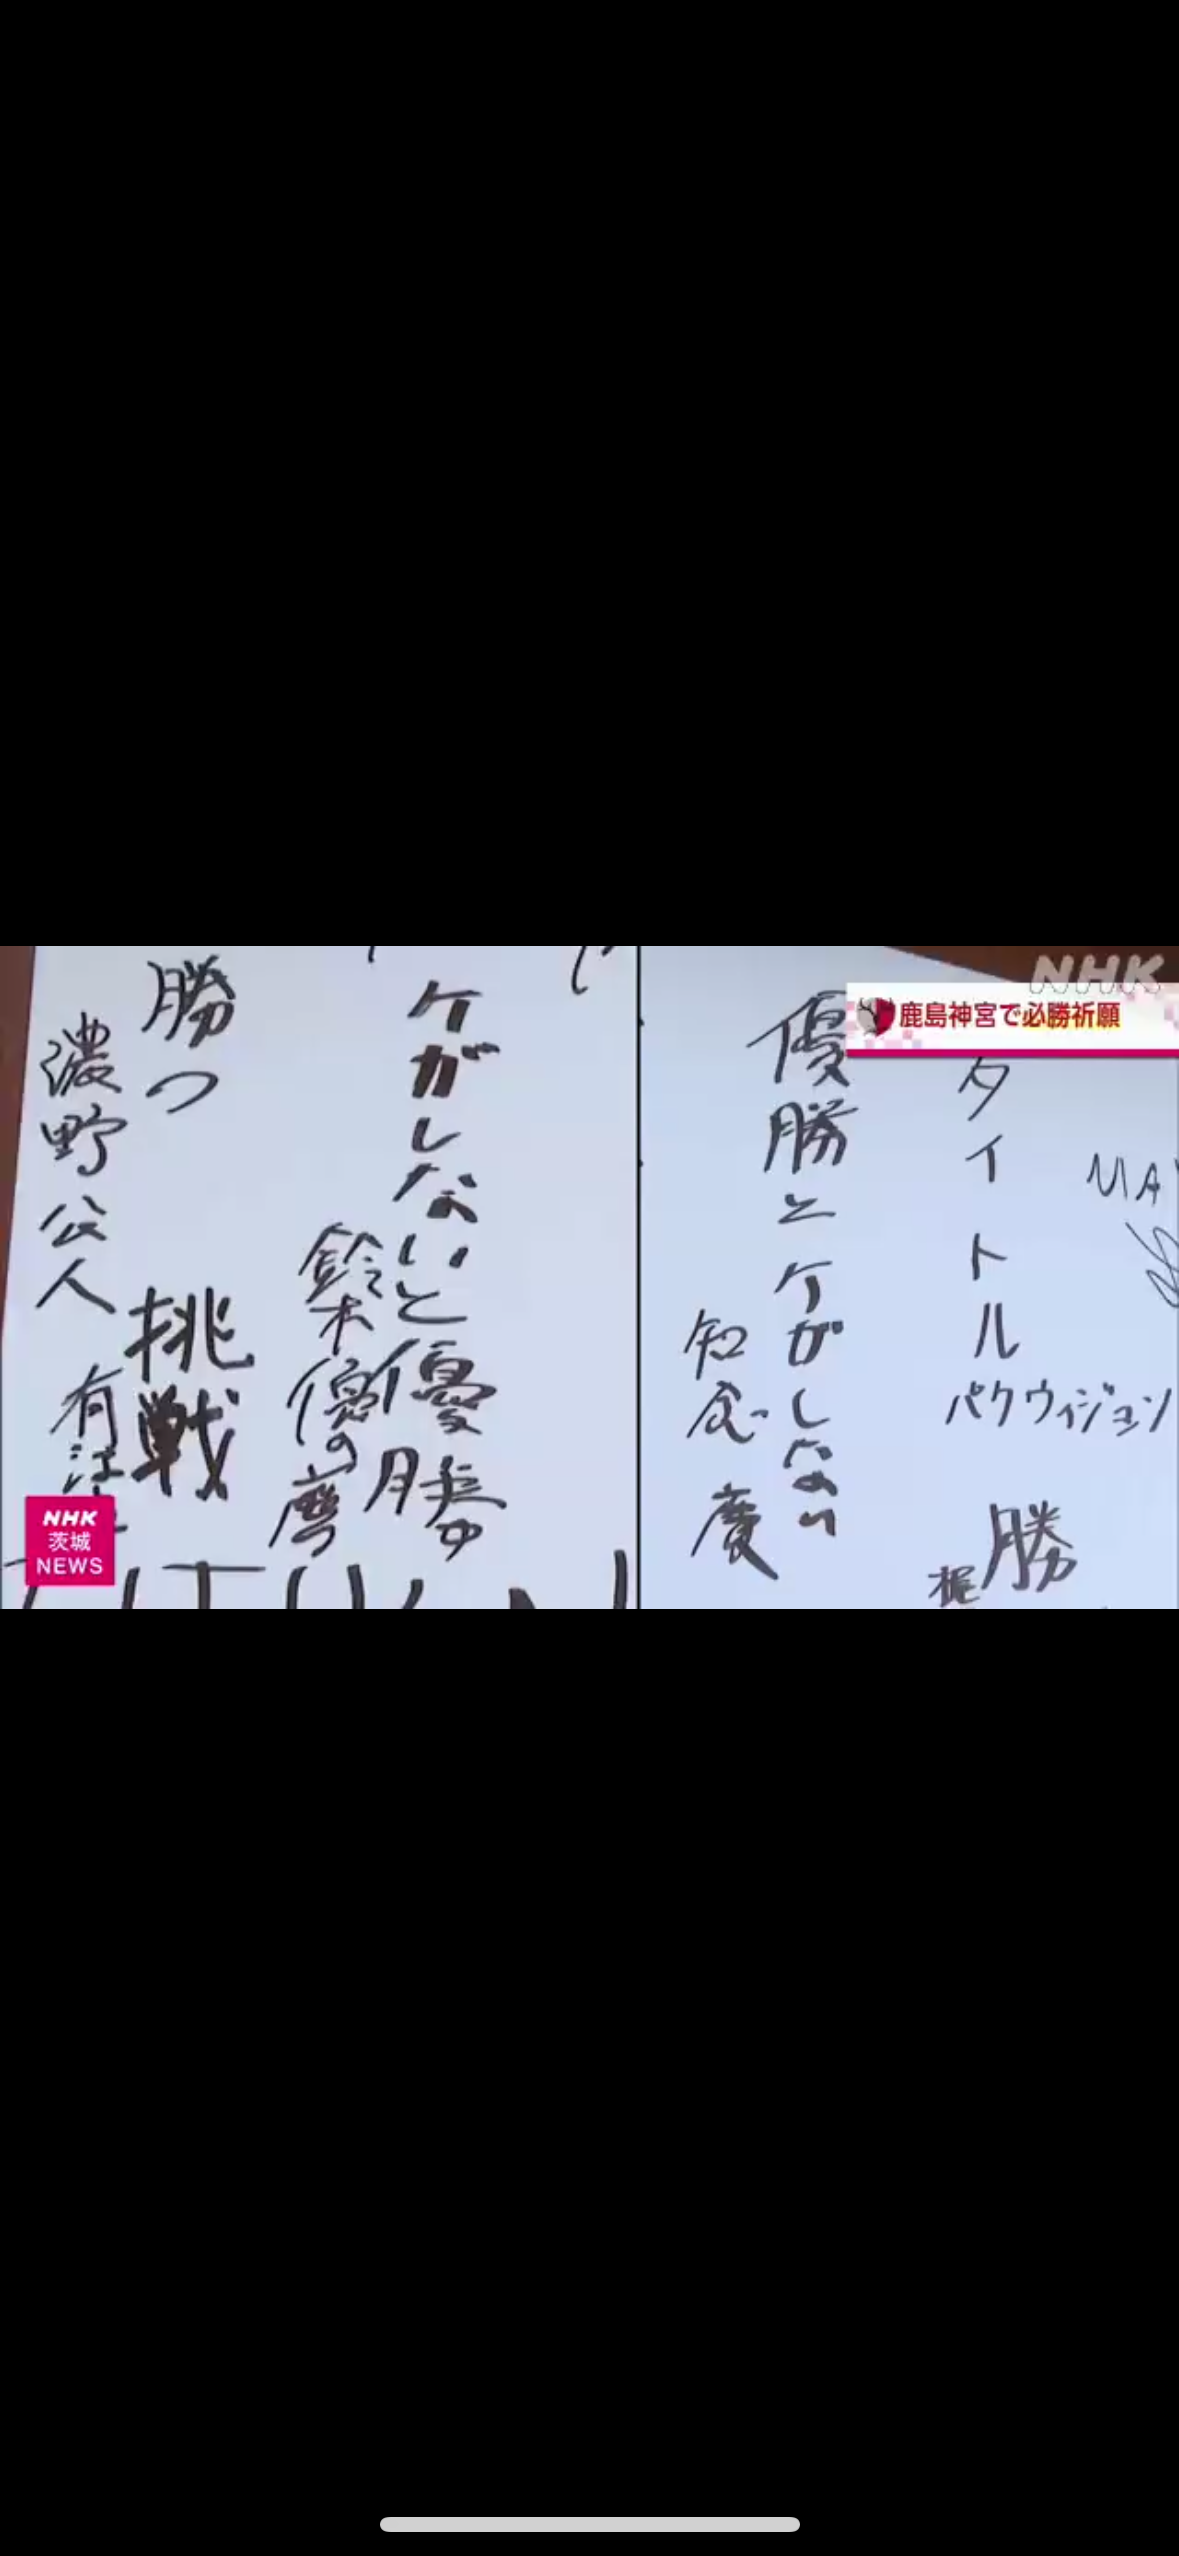 NHK
鹿島神宮で必勝祈願
タイトル
パクウィジョン
勝
梶
優勝とケガしない
知念慶
ケガしないと優勝
鈴木優磨
勝つ
濃野公人
挑戦
有
NHK
茨城
NEWS